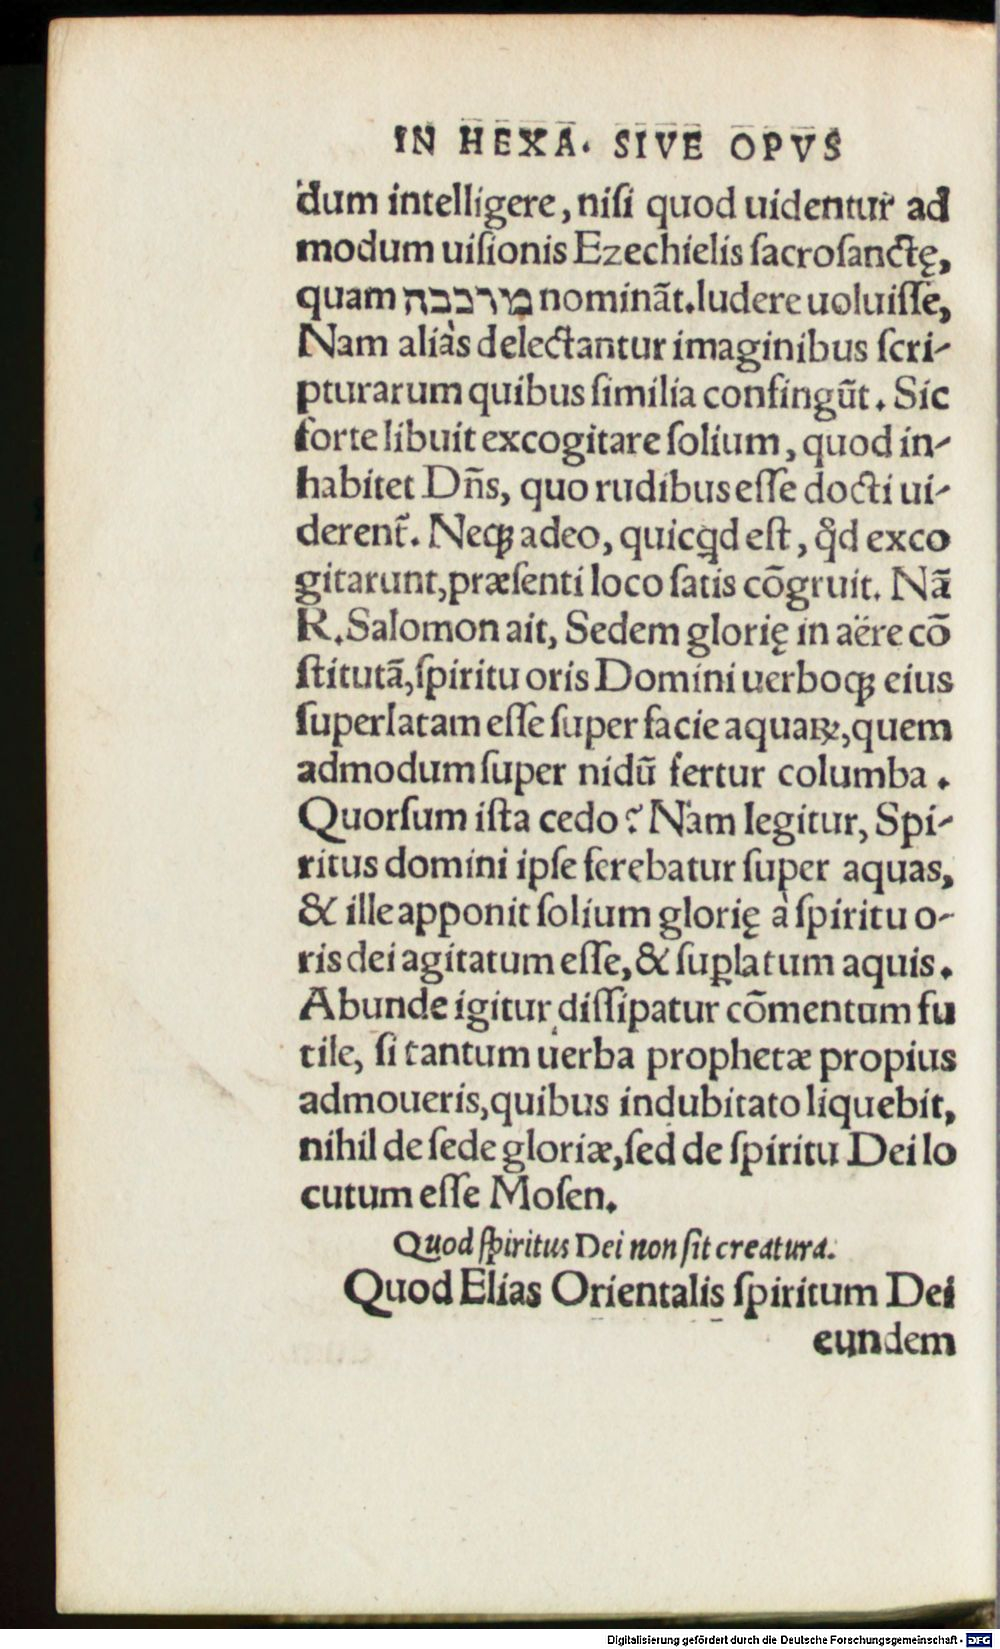 IN HEXA. SIVE OPVS
dum intelligere, niſi quod uidentur ad
modum uiſionis Ezechielis ſacroſanctę,
quam מרכבה nominãt. ludere uoluiſſe,
Nam aliàs delectantur imaginibus ſcri-
pturarum quibus ſimilia confingũt. Sic
forte libuit excogitare ſolium, quod in-
habitet Dñs, quo rudibus eſſe docti ui-
derent᷑. Neqꝫ adeo, quicꝗd eſt, qͥd exco
gitarunt, præſenti loco ſatis cõgruit. Nã
R. Salomon ait, Sedem glorię in aëre cõ
ſtitutã, ſpiritu oris Domini uerboqꝫ eius
ſuperlatam eſſe ſuper facie aquaꝝ, quem
admodum ſuper nidũ fertur columba.
Quorſum iſta cedo? Nam legitur, Spi-
ritus domini ipſe ferebatur ſuper aquas,
& ille apponit ſolium glorię à ſpiritu o-
ris dei agitatum eſſe, & ſuꝑlatum aquis.
Abunde igitur diſſipatur cõmentum fu
tile, ſi tantum uerba prophetæ propius
admoueris, quibus indubitato liquebit,
nihil de ſede gloriæ, ſed de ſpiritu Dei lo
cutum eſſe Moſen.
Quod ſpiritus Dei non ſit creatura.
Quod Elias Orientalis ſpiritum Dei
eundem
Digitalisierung gefördert durch die Deutsche Forschungsgemeinschaft - DFG